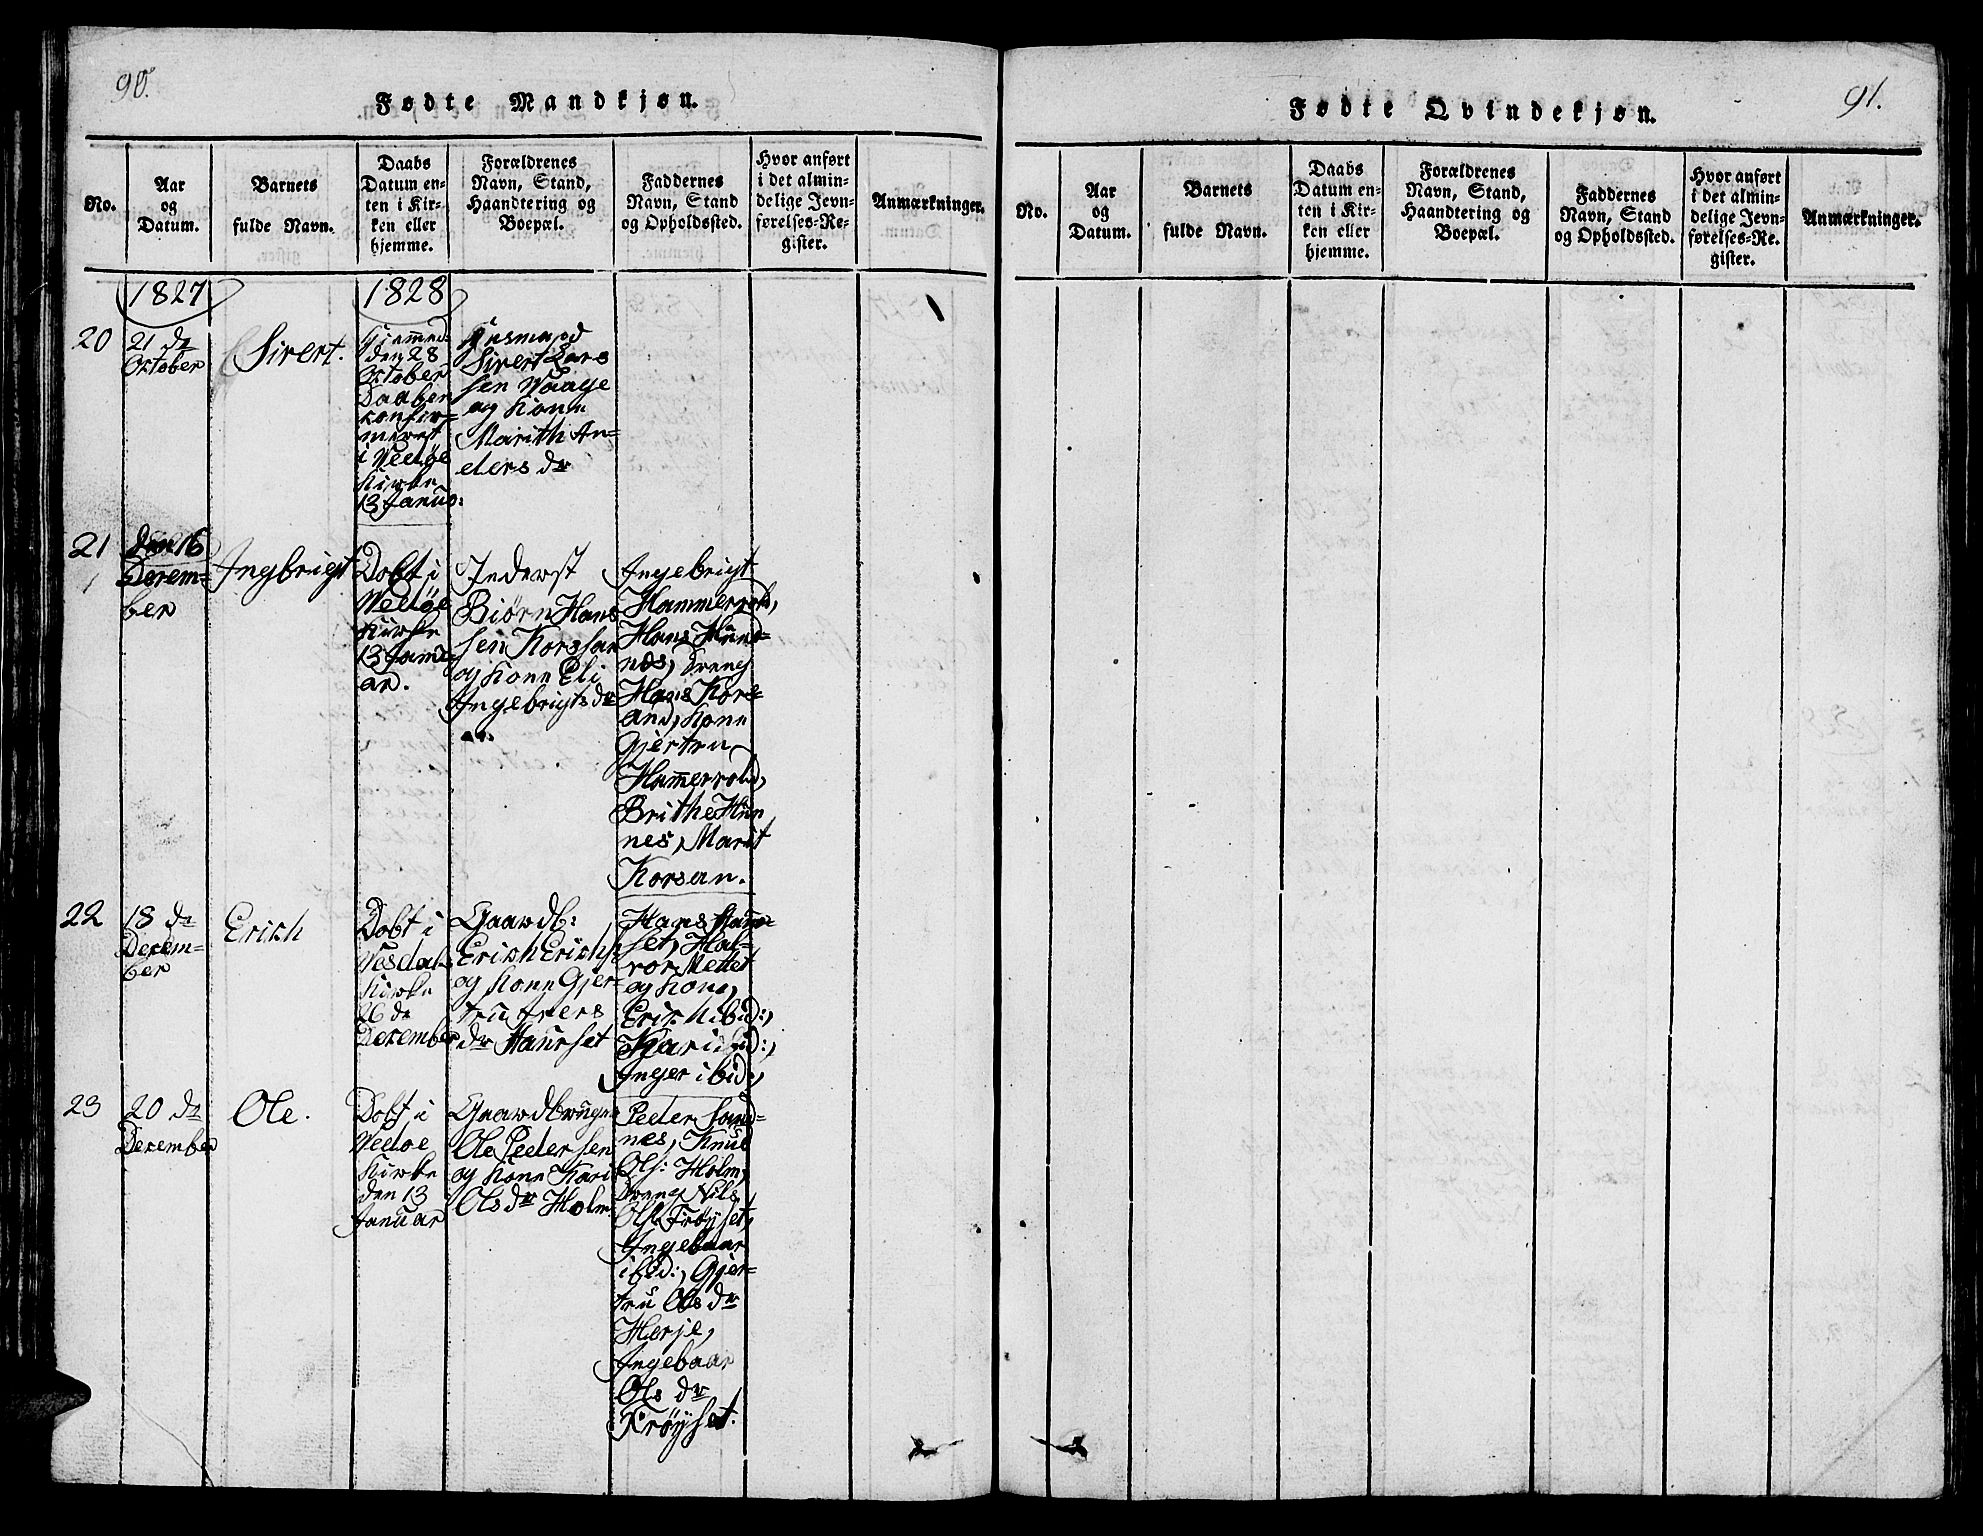 90.
Fødte Mandkjøn.
No.
Aar
og
Datum.
Barnets
fulde Navn.
Daabs
Datum en-
ten i Kir-
ken eller
hjemme.
Forældrenes
Navn, Stand,
Haandtering og
Boepæl.
Faddernes
Navn, Stand
og Opholdssted.
Hvor anført
i det almin-
delige Jevn-
førelses-Re-
gister.
Anmærkninger.
1827
1828
20
21 de
October
Sivert.
Hjemmed
den 28
October
Daaben
confir-
meret
i Vedøe
Kirke
13 Janua:
Huusmand
Sivert Lars
sen Waage
og Kone
Marith An-
ders dr
21
den 16
Decem-
ber
Ingbrigt
Døbt i
Vedøe
Kirke
13 Janu-
ar.
Inderst
Biørn Hans
sen Korssan
og Kone Eli
Ingebrigts dr
Ingebrigt
Hammervold,
Hans Hund-
nes, Dreng
Hans Kors-
and, Kone
Gjertru
Hammervold,
Brithe Hun
nes, Marit
Korsan.
22
18 de
Decem-
ber
Erich
Døbt i
Vesdals
Kirke
26 de
December
Gaardb:
Erich Erichs
og Kone Gjer-
tru Ivers
dr Haurset
Hans Haur-
set, Hal-
vor Mettet
og Kone,
Erich ibid:,
Kari ibid:,
Inger ibid:,
23
20 de
December
Ole.
Døbt i
Vedøe
Kirke
den 13
Januar
Gaardbruger
Ole Pedersen
og Kone Kari
Ols dr Holm
Peder Sand-
nes, Knud
Ols: Holm,
Dreng Nils
Ols Frøyset,
Ingebaar
ibid:, Gjer-
tru Ols dr
Herje,
Ingebaar
Ols dr
Frøyset.
91.
Fødte Qvindekjøn.
No.
Aar
og
Datum.
Barnets
fulde Navn.
Daabs
Datum en-
ten i Kir-
ken eller
hjemme.
Forældrenes
Navn, Stand,
Haandtering og
Boepæl.
Faddernes
Navn, Stand
og Opholdssted.
Hvor anført
i det almin-
delige Jevn-
førelses-Re-
gister.
Anmærkninger.